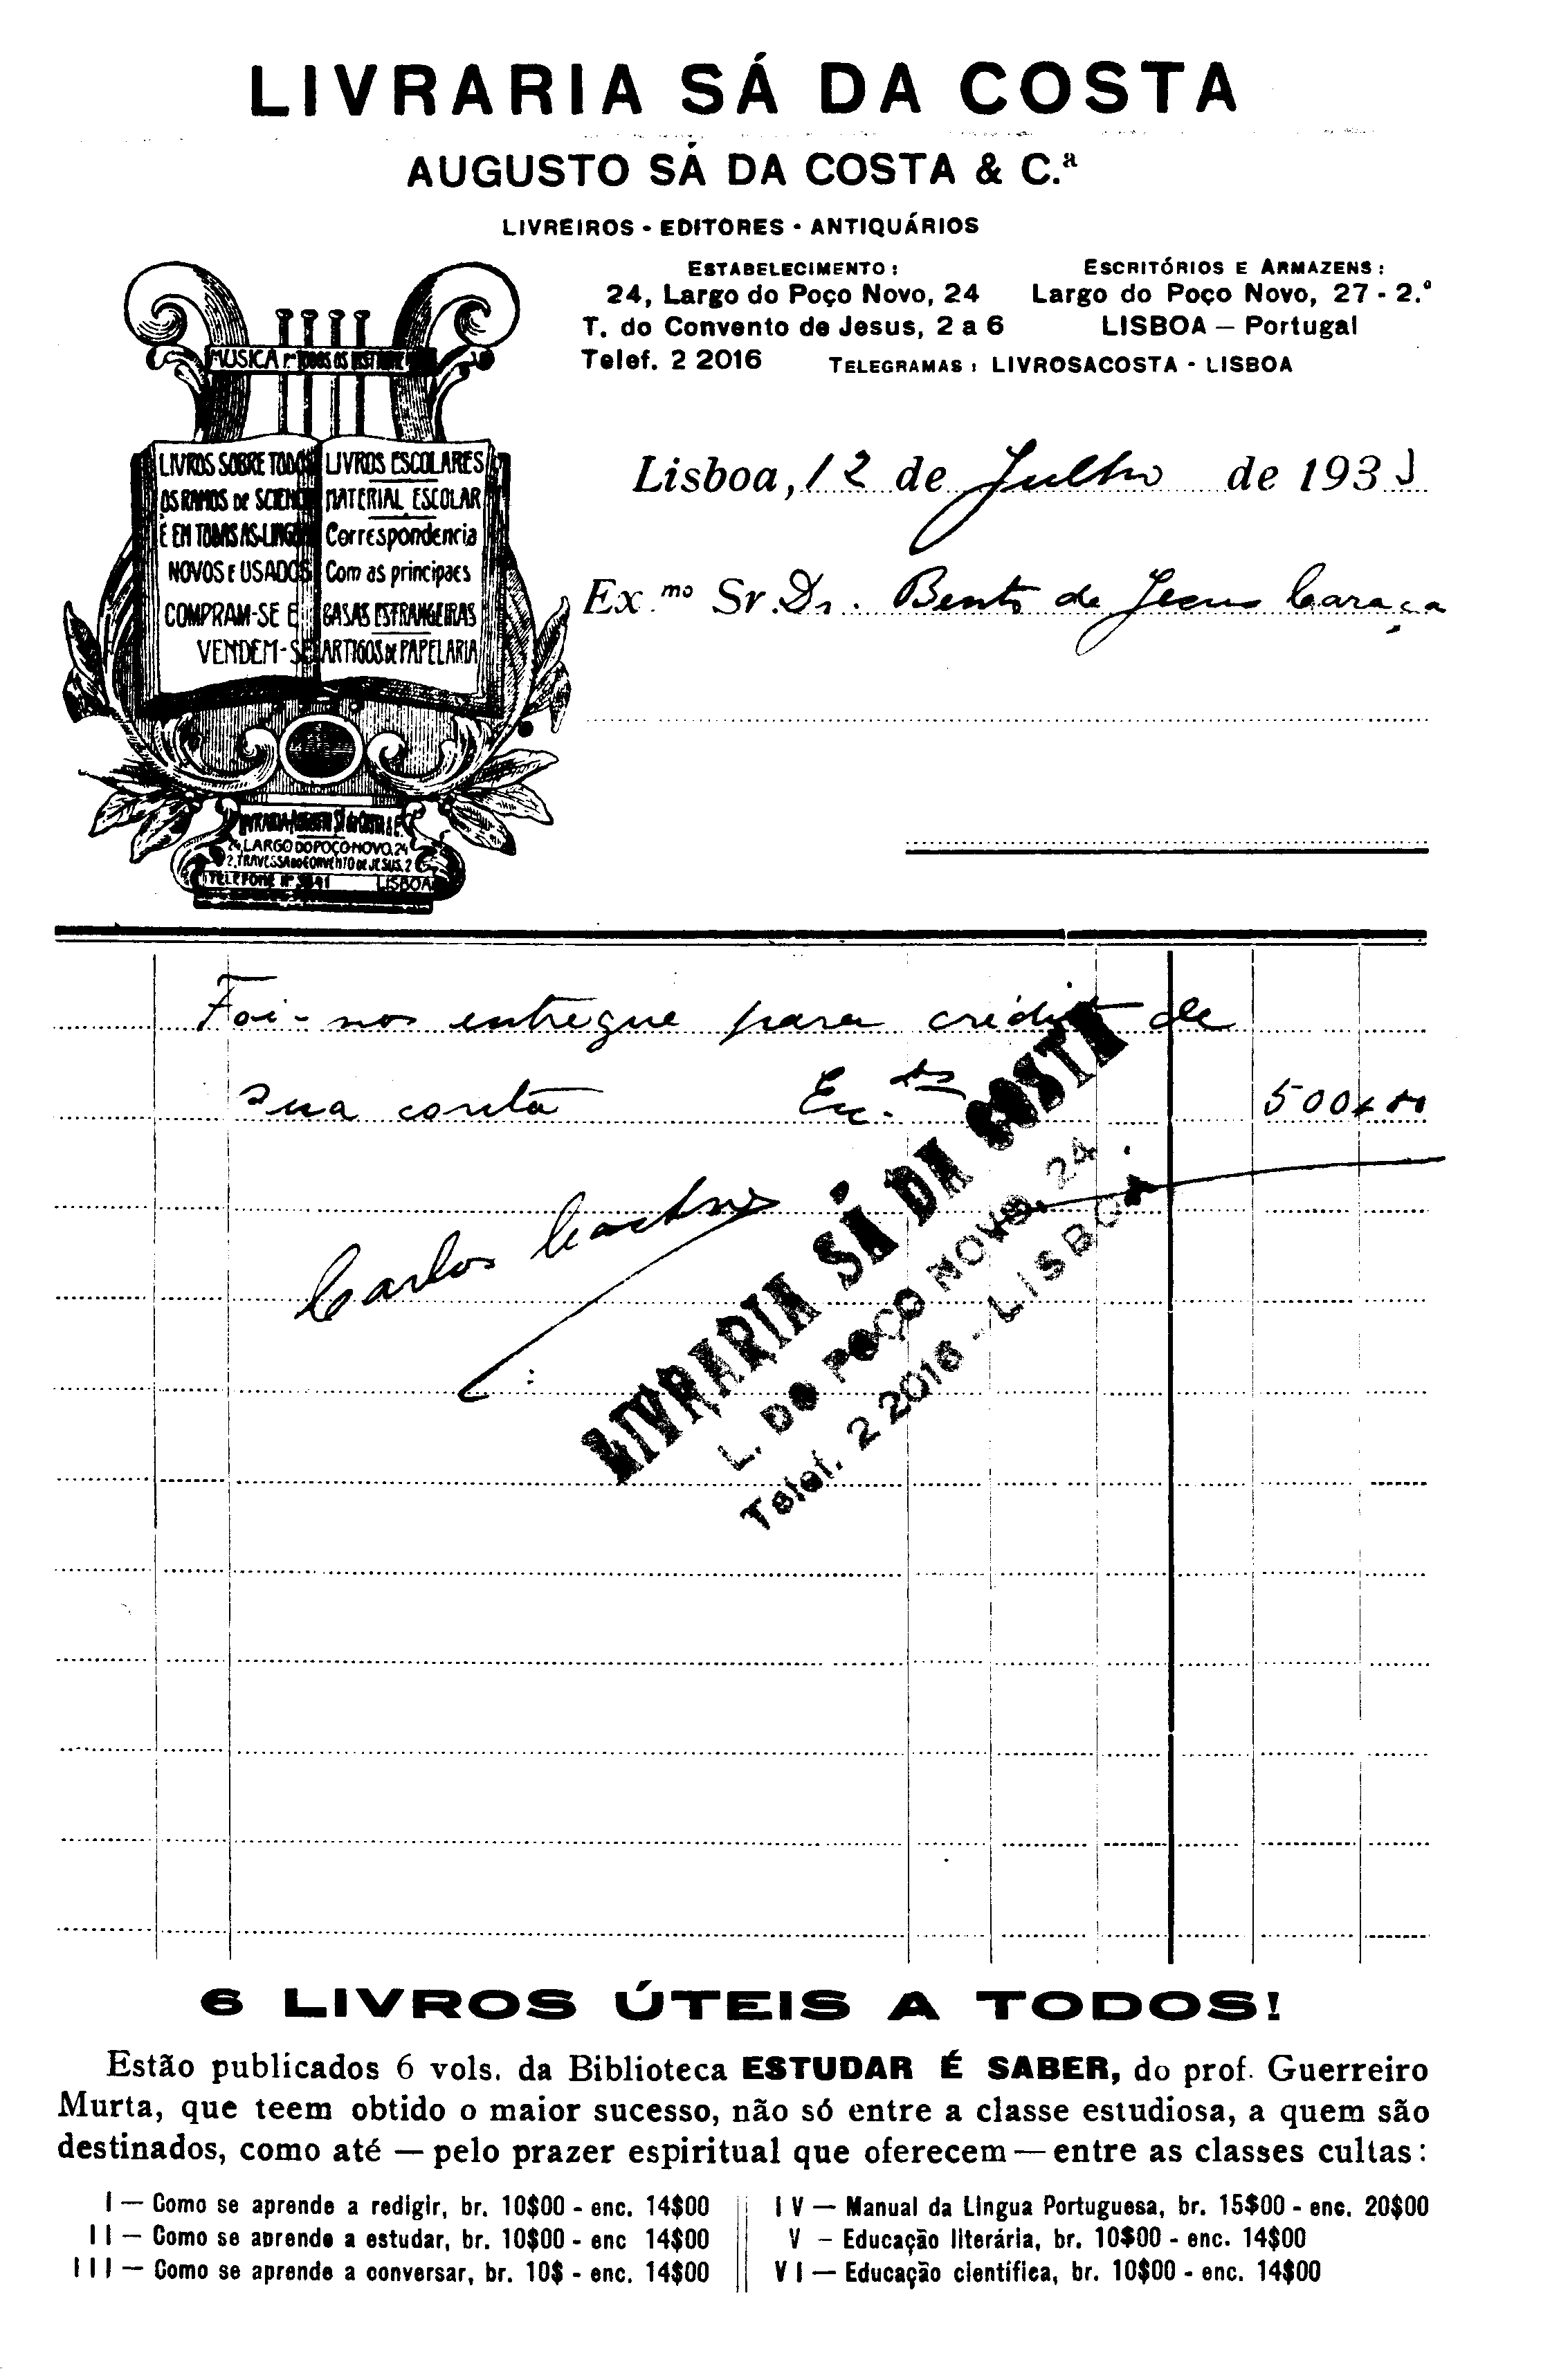 LIVRARIA SÁ DA COSTA
AUGUSTO SÁ DA COSTA & C.ª
LIVREIROS - EDITORES - ANTIQUÁRIOS
ESTABELECIMENTO:
24, Largo do Poço Novo, 24
T. do Convento de Jesus, 2 a 6
Telef. 2 2016
ESCRITÓRIOS E ARMAZENS:
Largo do Poço Novo, 27 - 2.º
LISBOA — Portugal
TELEGRAMAS: LIVROSACOSTA - LISBOA
MUSICA
LIVROS SOBRE TODOS
OS RAMOS DE SCIENC
E EM TODAS AS LINGUAS
NOVOS E USADOS
COMPRAM-SE E
VENDEM-SE
LIVROS ESCOLARES
MATERIAL ESCOLAR
Correspondencia
Com as principaes
CASAS ESTRANGEIRAS
ARTIGOS DE PAPELARIA
24, LARGO DO POÇO NOVO, 24
2, TRAVESSA DO CONVENTO DE JESUS, 2
TELEFONE Nº LISBOA
Lisboa, 12 de Julho de 1933
Ex.mo Sr. Dr. Bento de Jesus Caraça
Foi-nos entregue para crédito de
sua conta Esc.dos 500$00
Carlos
LIVRARIA SÁ DA COSTA
L. DO POÇO NOVO, 24
Telef. 2 2016 - LISBOA
6 LIVROS ÚTEIS A TODOS!
Estão publicados 6 vols. da Biblioteca ESTUDAR É SABER, do prof. Guerreiro
Murta, que teem obtido o maior sucesso, não só entre a classe estudiosa, a quem são
destinados, como até — pelo prazer espiritual que oferecem — entre as classes cultas:
I — Como se aprende a redigir, br. 10$00 - enc. 14$00
II — Como se aprende a estudar, br. 10$00 - enc 14$00
III — Como se aprende a conversar, br. 10$ - enc. 14$00
IV — Manual da Lingua Portuguesa, br. 15$00 - enc. 20$00
V - Educação literária, br. 10$00 - enc. 14$00
VI — Educação científica, br. 10$00 - enc. 14$00